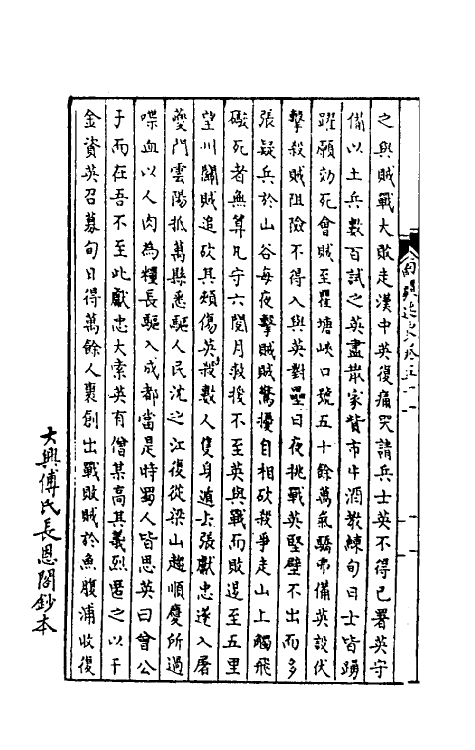 之與賊戰大敗走漢中英復痛哭請兵士英不得已署英守
備以土兵數百試之英盡散家貲市牛酒教練旬日士皆踴
躍願効死會賊至瞿塘峽口號五十餘萬氣驕弗備英設伏
擊殺賊阻險不得入與英對壘日夜挑戰英堅壁不出而多
張疑兵於山谷每夜擊賊賊驚擾自相砍殺爭走山上觸飛
礮死者無算凡守六閱月救援不至英與戰而敗退至五里
望川關賊追砍其頰傷英殺數人隻身遁去張獻忠遂入屠
夔門雲陽抵萬縣悉驅人民沈之江復從梁山趨順慶所過
喋血以人肉為糧長驅入成都當是時蜀人皆思英曰曾公
子而在吾不至此獻忠大索英有僧某高其義烈匿之以千
金資英召募旬日得萬餘人裹創出戰敗賊於魚腹浦收復
大興傅氏長恩閣鈔本